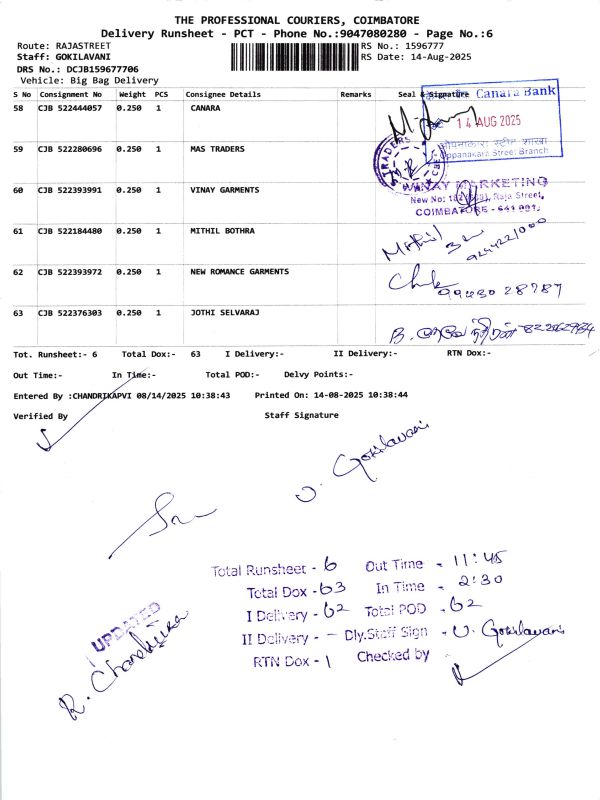 THE PROFESSIONAL COURIERS, COIMBATORE
Delivery Runsheet - PCT - Phone No.:9047080280 - Page No.:6
Route: RAJASTREET RS No.: 1596777
Staff: GOKILAVANI RS Date: 14-Aug-2025
DRS No.: DCJB159677706
Vehicle: Big Bag Delivery
S No Consignment No Weight PCS Consignee Details Remarks Seal & Signature
Canara Bank
58 CJB 522444057 0.250 1 CANARA
14 AUG 2025
59 CJB 522280696 0.250 1 MAS TRADERS
ओप्पनाकारा स्ट्रीट शाखा
Oppanakara Street Branch
TRADERS
60 CJB 522393991 0.250 1 VINAY GARMENTS
VINAY MARKETING
Raja Street,
COIMBATORE - 641 001.
61 CJB 522184480 0.250 1 MITHIL BOTHRA
Mithil
62 CJB 522393972 0.250 1 NEW ROMANCE GARMENTS
63 CJB 522376303 0.250 1 JOTHI SELVARAJ
Tot. Runsheet:- 6 Total Dox:- 63 I Delivery:- II Delivery:- RTN Dox:-
Out Time:- In Time:- Total POD:- Delvy Points:-
Entered By :CHANDRIKAPVI 08/14/2025 10:38:43 Printed On: 14-08-2025 10:38:44
Verified By Staff Signature
U. Gokilavani
Total Runsheet - 6 Out Time - 11:45
Total Dox - 63 In Time - 2:30
I Delivery - 62 Total POD - 62
II Delivery - - Dly.Staff Sign - U. Gokilavani
RTN Dox - 1 Checked by
UPDATED
R. Chandrika